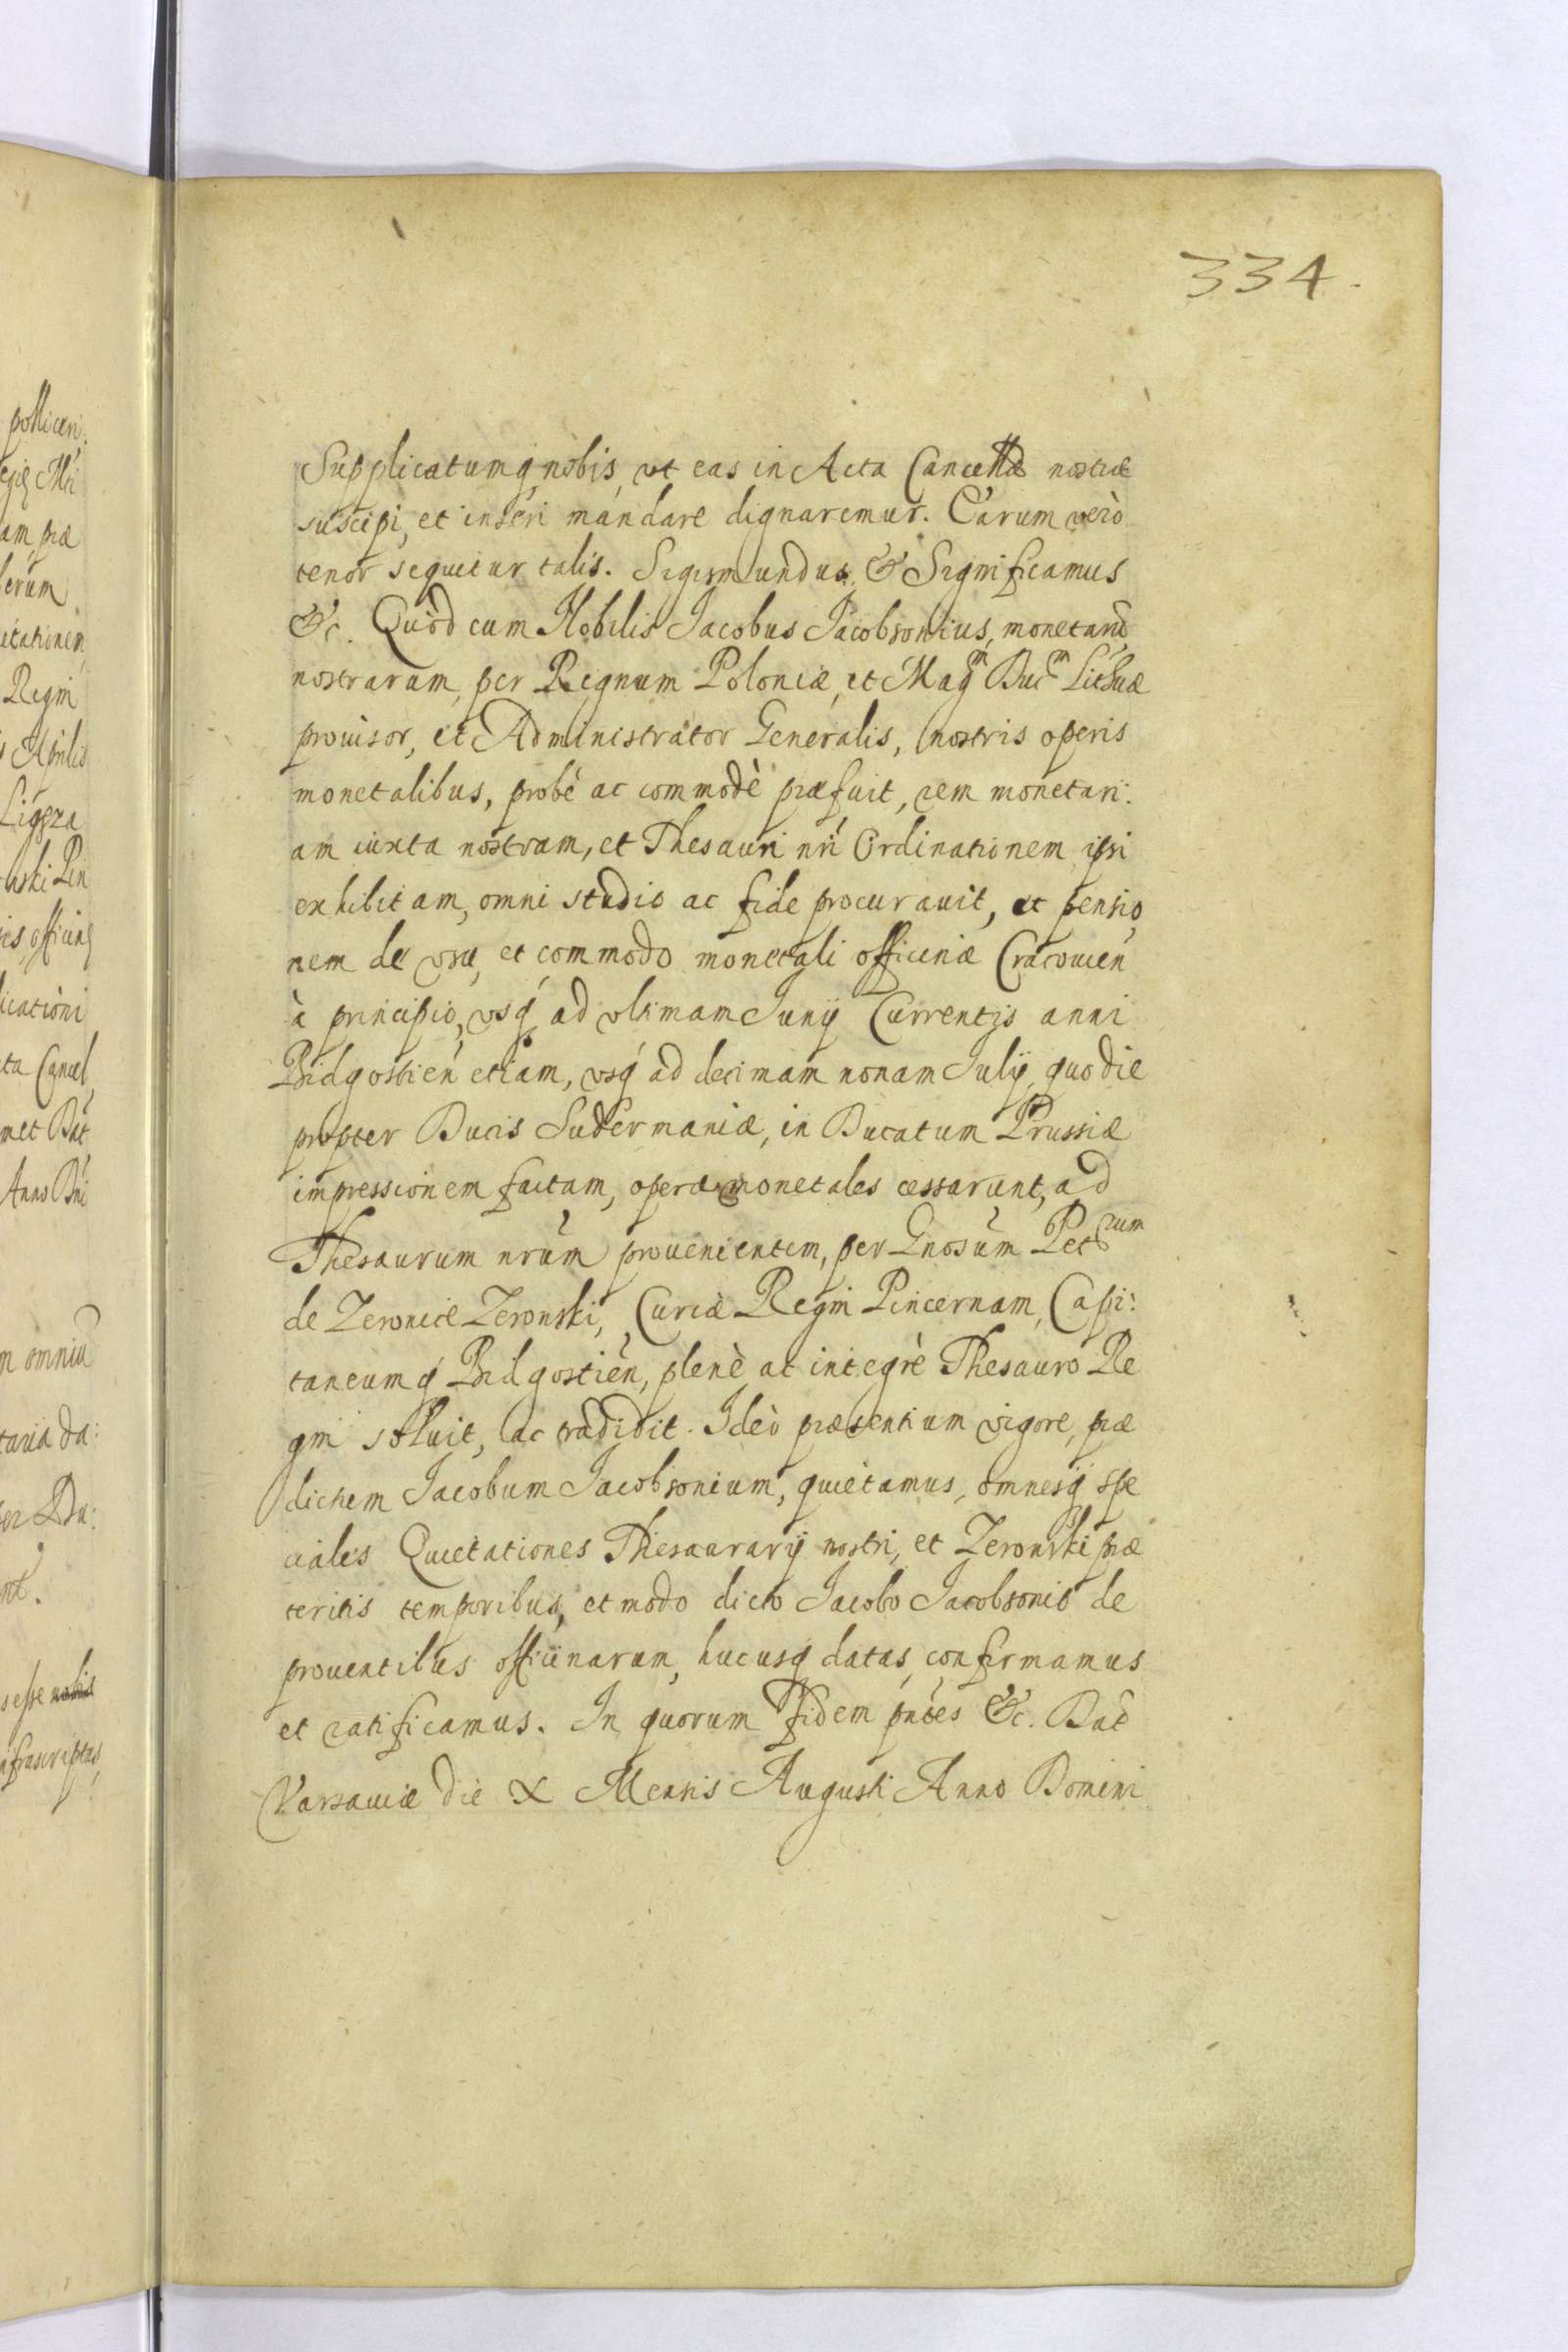 334.
Supplicatumq́ nobis, vt eas in Acta Cancellæ nostræ
suscipi, et inseri mandare dignaremur. Earum verò
tenor sequitur talis. Sigismundus &c Significamus
&c. Quòd cum Nobilis Jacobus Jacobsonius, monetarũ
nostrarum, per Regnum Poloniæ, et Magm Ducm Lithuæ
prouisor, et Administrator Generalis, nostris operis
monetalibus, probè ac commodè præfuit, rem monetari:
am iuxta nostram, et Thesauri nr̃i Ordinationem ipsi
exhibitam, omni studio ac fide procurauit, et pensio,
nem de vsu, et commodo monetali officinæ Cracouień
à principio, vsq́ ad vltimam Junij Currentis anni
Bidgostień etiam, vsq́ ad decimam nonam Julij, quo die
propter Ducis Sudermaniæ, in Ducatum Prussiæ
impressionem factam, operæ monetales cessarunt, ad
Thesaurum nrũm prouenientem, per Gnosũm Petrum
de Zeronice Zeronski, Curiæ Regni Pincernam, Capi:
taneumq́ Bidgostień, plenè ac integrè Thesauro Re
gni soluit, ac tradidit. Ideò præsentium vigore, præ
dictum Jacobum Jacobsonium, quietamus, omnesq́ spe
ciales Quietationes Thesaurarij nostri, et Zeronski præ
teritis temporibus, et modo dicto Jacobo Jacobsonio de
prouentibus officinarum, hucusq́ datas, confirmamus
et ratificamus. In quorum fidem pñtes &c. Dat̃
Varsauiæ die X Mensis Augusti Anno Domini
polliceri:
am, præ
Regni
Aprilis
Ligęza
licationi
Anno Dñi
m omniũ
taria da:
s esse nobis
nfrascriptas,